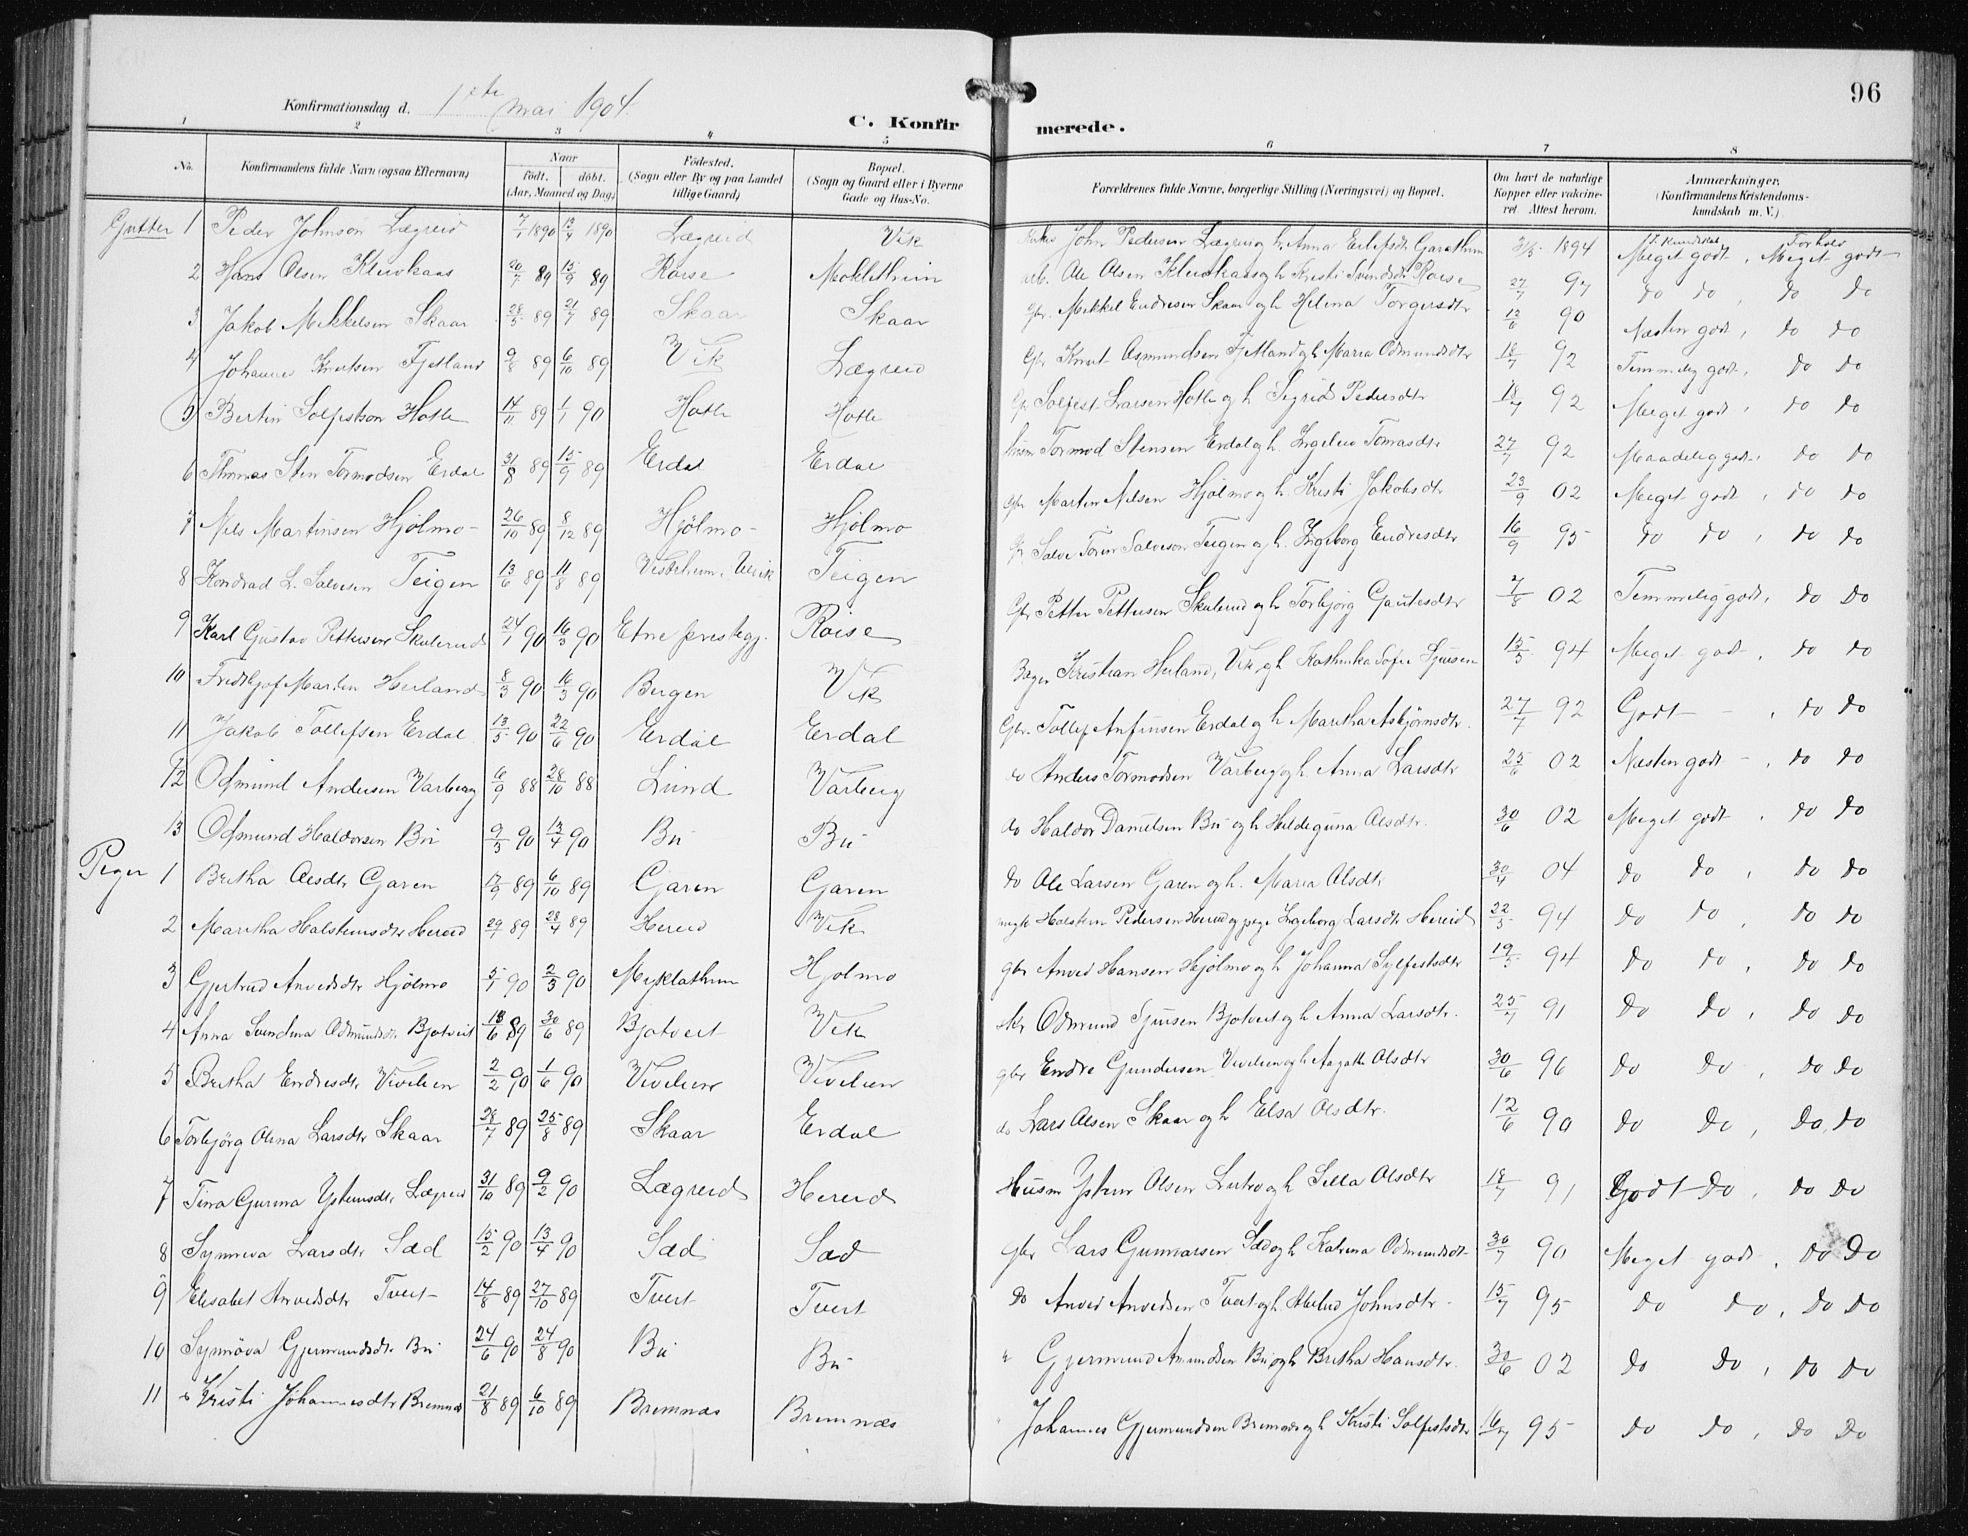 96
Konfirmationsdag d. 1ste mai 1904.
C. Konfirmerede.
1 2 3 4 5 6 7 8
No. Konfirmandens fulde Navn (ogsaa Efternavn) Naar født. døbt. (Aar, Maaned og Dag) Fødested. (Sogn eller By og paa Landet tillige Gaard) Bopæl. (Sogn og Gaard eller i Byerne Gade og Hus-No. Forældrenes fulde Navne, borgerlige Stilling (Næringsvei) og Bopæl. Om havt de naturlige Kopper eller vaccineret Attest herom. Anmærkninger. (Konfirmandens Kristendomskundskab m. V.)
Gutter 1 Peder Johnson Lægreid 7/4 1890 13/4 1890 Lægreid Vik John Pedersen Lægreid og h. Anna Eilefsdt. Garathun 31/5 1894 Meget godt, Meget godt
2 Hans Olsen Kluvhaas 20/7 89 15/9 89 Røise Møklethun arb. Ole Olsen Kluvhaas og h. Kristi Svendsdt. Røise 27/7 97 do do, do do
3 Jakob Mikkelsen Skaar 28/5 89 21/7 89 Skaar Skaar gbr. Mikkel Endresen Skaar og h. Helena Torgersdtr 12/6 90 Næsten godt, do do
4 Johannes Knutsen Fjetland 9/8 89 6/10 89 Vik Lægreid Gbr Knut Asmundsen Fjetland og h Maria Odmundsdtr 18/7 92 Temmelig godt, do do
5 Bertin Solfestson Hotle 14/11 89 1/1 90 Hotle Hotle Gbr Solfest Larsen Hotle og h. Sigrid Pedersdtr 18/7 92 Meget godt, do do
6 Thomas Sten Tormodsen Erdal 31/8 89 15/9 89 Erdal Erdal Tormod Stensen Erdal og h. Ingeleiv Tomasdtr 27/7 92 Maadelig godt, do do
7 Nils Martinsen Hjølmo 26/10 89 8/12 89 Hjølmo Hjølmo gbr Martin Nilsen Hjølmo og h. Kristi Jakobsdtr 23/9 02 Meget godt, do do
8 Kondrad L. Salvesen Teigen 13/6 89 11/8 89 Vestrheim, Ulvik Teigen Salve Salveson Teigen og h. Ingeborg Endresdtr 16/9 95 do do, do do
9 Karl Gustav Pettersen Skulerud 24/1 90 16/3 90 Etne prestegj. Røise Gbr Petter Pettersen Skulerud og h Torbjørg Gautesdtr 7/8 02 Temmelig godt, do do
10 Fridtjof Martin Heiland 8/3 90 16/3 90 Bergen Vik Bager Kristian Heiland, Vik, og h Kathinka Sofie Sjursen 15/5 94 Meget godt, do do
11 Jakob Tollefsen Erdal 13/5 90 22/6 90 Erdal Erdal Gbr. Tollef Anfinsen Erdal og h Maritha Asbjørnsdtr. 27/7 92 Godt -, do do
12 Odmund Andersen Varberg 6/9 88 28/10 88 Lund Varberg do Anders Tormodsen Varberg og h Anna Larsdtr 25/6 02 Næsten godt -, do do
13 Odmund Haldorsen Bu 9/3 90 13/4 90 Bu Bu do Haldor Danielsen Bu og h Hildeguna Olsdtr. 30/6 02 Meget godt, do do
Piger 1 Britha Olsdtr Garen 17/9 89 6/10 89 Garen Garen do Ole Larsen Garen og h. Maria Olsdtr 30/4 04 do do, do do
2 Maritha Halstensdtr Hereid 29/1 89 28/4 89 Hereid Vik Halsten Pedersen Hereid og pige Ingeborg Larsdtr Hereid 22/5 94 do do, do do
3 Gjertrud Anvedsdtr Hjølmo 5/1 90 2/3 90 Myklathun Hjølmo gbr Anved Hansen Hjølmo og h Johanna Sylfestsdtr 19/5 94 do do, do do
4 Anna Svendina Odmundsdtr Bjotveit 18/6 89 30/6 89 Bjotveit Vik Odmund Sjursen Bjotveit og h Anna Larsdtr. 25/7 91 do do, do do
5 Britha Endresdtr Vivelien 2/2 90 1/6 90 Vivelien Vivelien gbr Endre Gundersen Vivelien og h Aagathe Olsdtr 30/6 96 do do, do do
6 Torbjørg Olina Larsdtr Skaar 28/7 89 25/8 89 Skaar Erdal do Lars Olsen Skaar og h Elsa Olsdtr. 12/6 90 do do, do do
7 Tina Gurina Ystensdtr Lægreid 31/10 89 9/2 90 Lægreid Hereid Husm Ysten Olsen Lutro og h Silla Olsdtr 18/7 91 Godt do, do do
8 Synneva Larsdtr Sæd 15/2 90 13/4 90 Sæd Sæd gbr Lars Gunnarsen Sæd og h Katrina Odmundsdt 30/7 90 Meget godt, do do
9 Elisabet Anvedsdtr Tveit 14/8 89 27/10 89 Tveit Tveit Do Anved Anvedsen Tveit og h. Johnsdtr 15/7 95 do do, do do
10 Synnøva Gjermundsdtr Bu 24/6 90 24/8 90 Bu Bu " Gjermund Amundsen Bu og h Britha Hansdtr. 30/6 02 do do, do do
11 Kristi Johannesdtr Bremnæs 21/8 89 6/10 89 Bremnæs Bremnæs " Johannes Gjermundsen Bremnæs og h Kristi Solfestsdtr 16/7 95 do do, do do